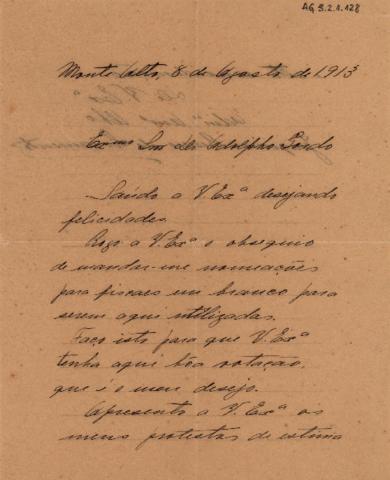 AG 5.2.1.128
Monte Alto, 8 de Agosto de 1913
Exmo Snr Dr Adolpho Gordo
Saúdo a V. Exª desejando
felicidades.
Rogo a V. Exª o obsequio
de mandar-me nomeações
para fiscaes em branco para
serem aqui utilizadas.
Faço isto para que V. Exª
tenha aqui bôa votação,
que é o meu desejo.
Apresento a V. Exª os
meus protestos de estima